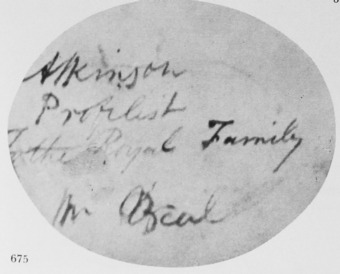 Atkinson
Profilist
To the Royal Family
Mr
675